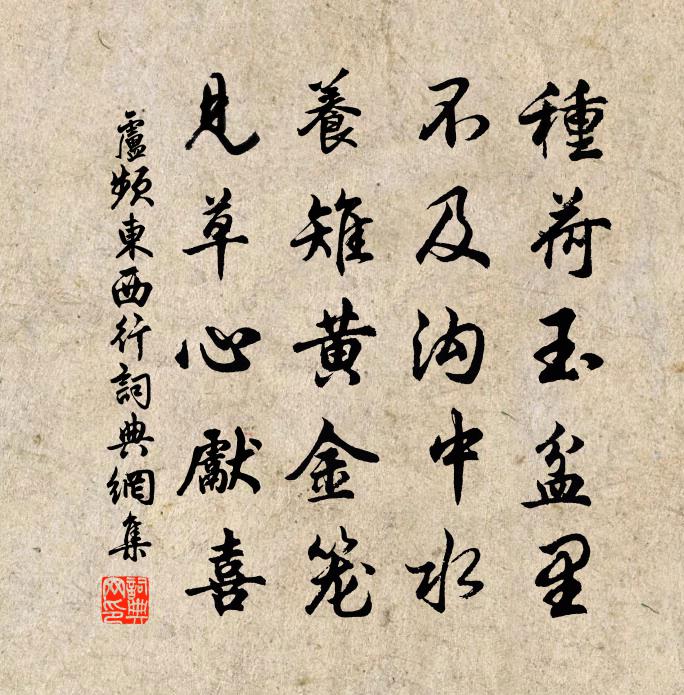 種荷玉盆里
不及沟中水
養雉黄金笼
見草心獻喜
盧頻東西行詞典網集
詞典網印